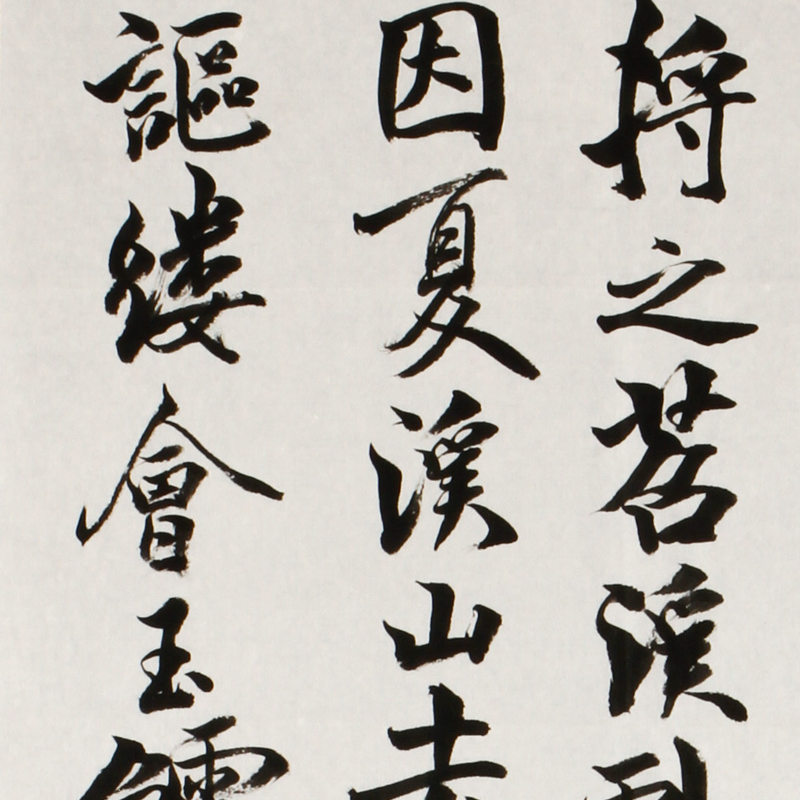 將之苕溪
因夏溪山去
謳縷會玉